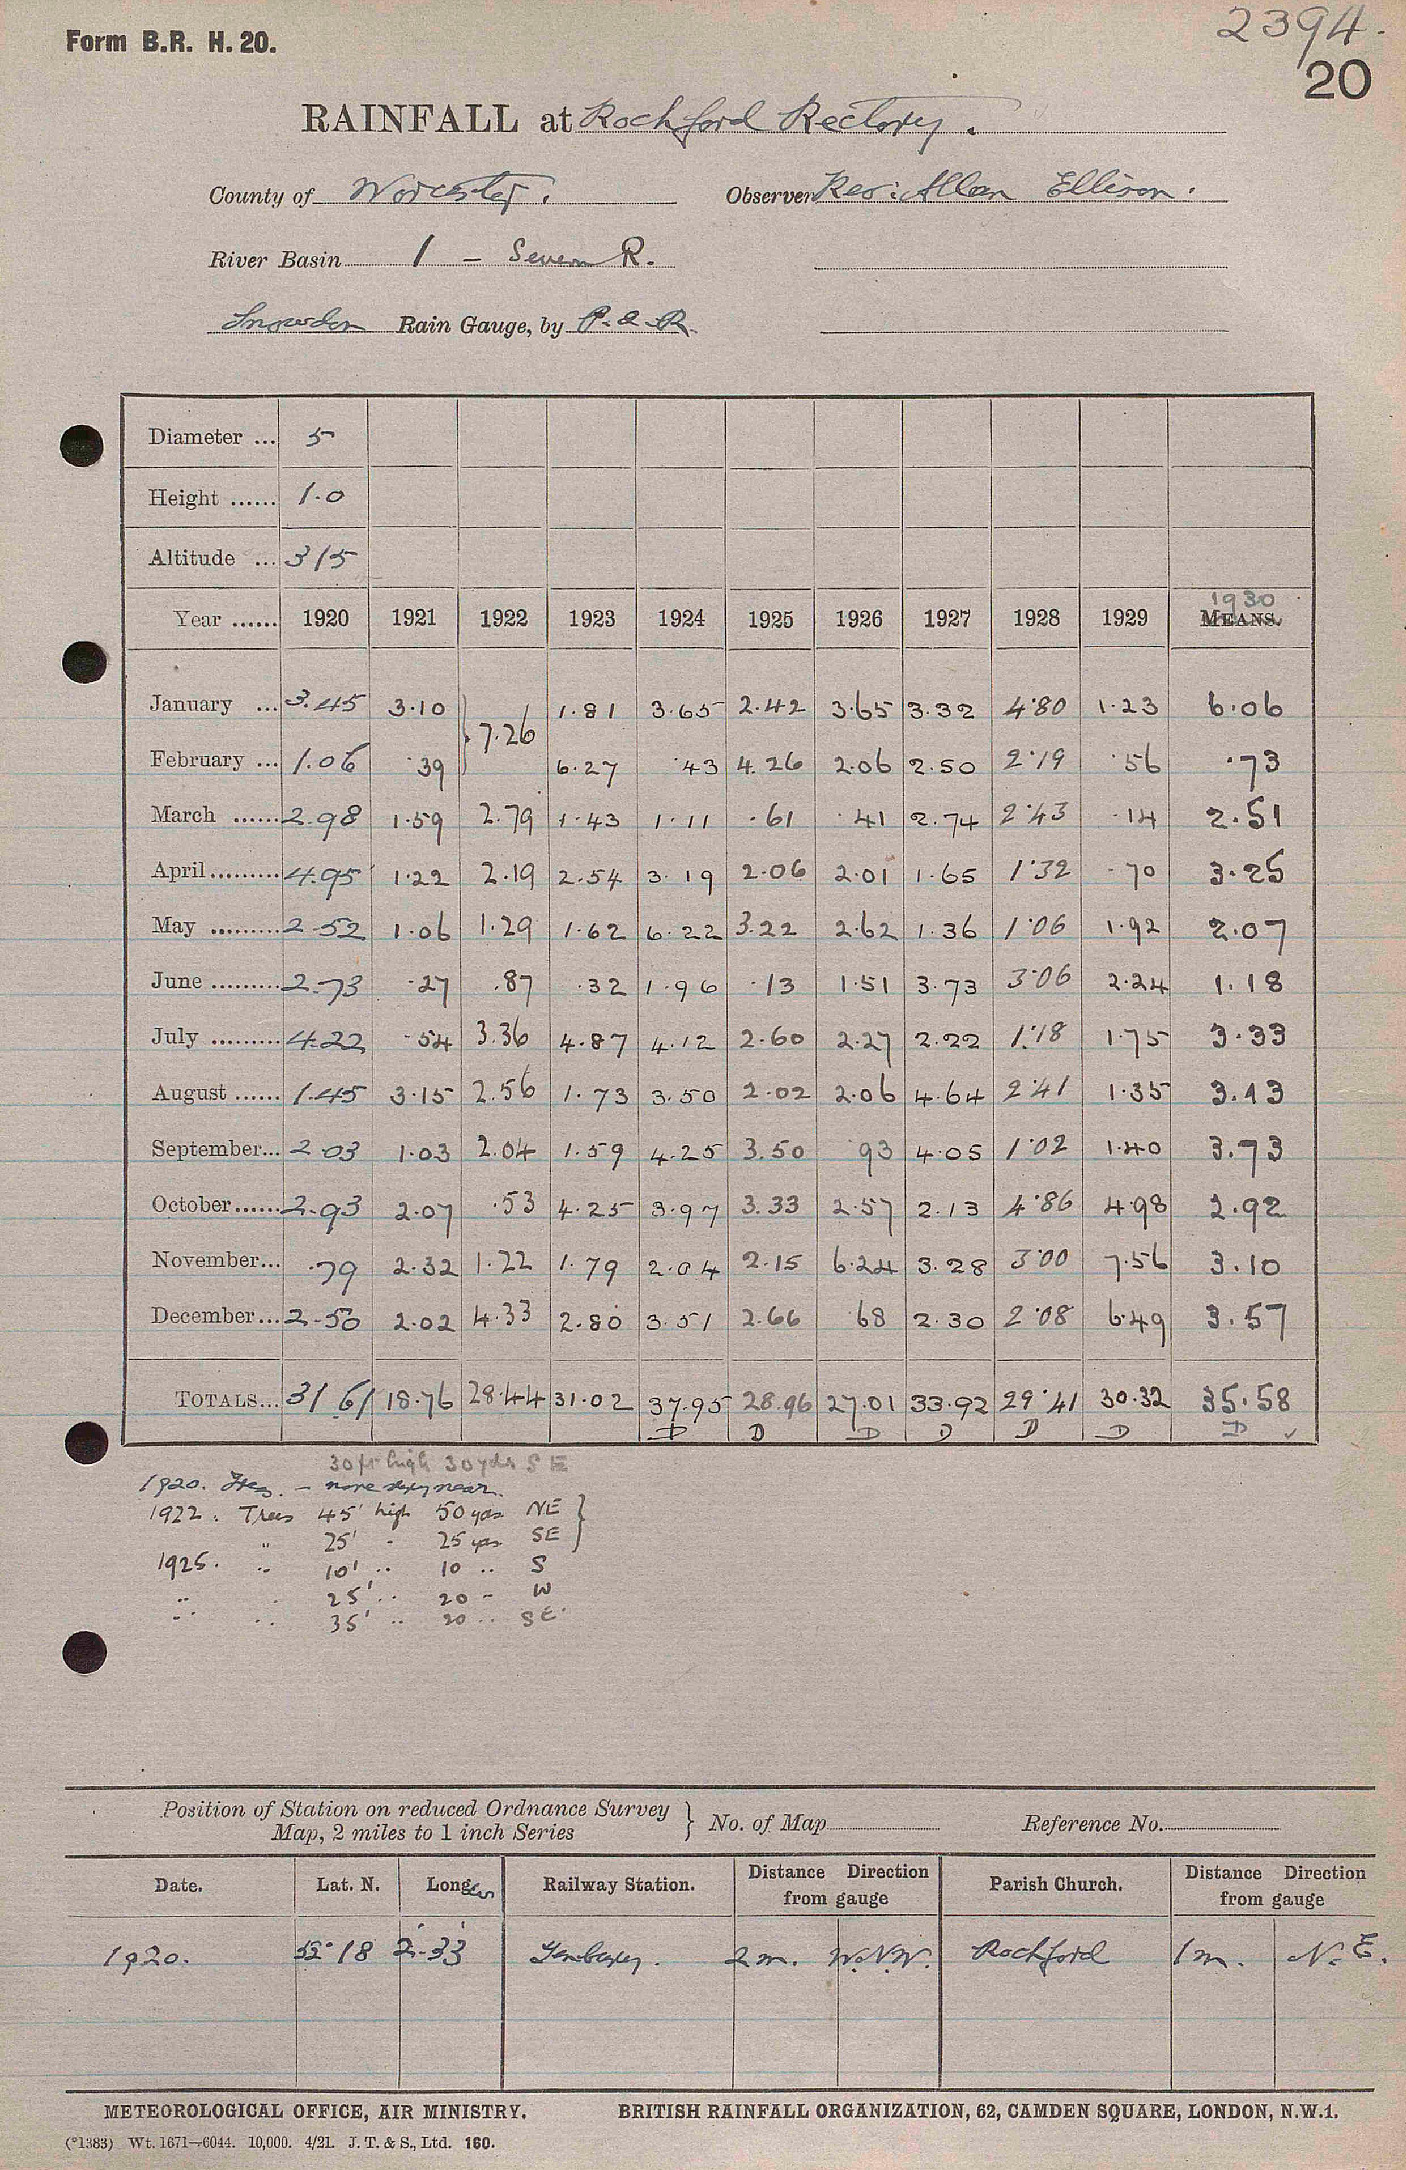 Form B.R. H. 20.
2394.
20
RAINFALL at Rochford Rectory.
County of Worcester. Observer Rev: Allan Ellison.
River Basin 1 - Severn R.
Snowdon Rain Gauge, by P. & R.
Diameter ... 5
Height ...... 1.0
Altitude ... 315
Year ...... 1920 1921 1922 1923 1924 1925 1926 1927 1928 1929 1930 MEANS.
January ... 3.45 3.10 } 7.26 1.81 3.65 2.42 3.65 3.32 4.80 1.23 6.06
February ... 1.06 .39 6.27 .43 4.26 2.06 2.50 2.19 .56 .73
March ...... 2.98 1.59 2.79 1.43 1.11 .61 .41 2.74 2.43 .14 2.51
April ......... 4.95 1.22 2.19 2.54 3.19 2.06 2.01 1.65 1.32 .70 3.25
May ......... 2.52 1.06 1.29 1.62 6.22 3.22 2.62 1.36 1.06 1.92 2.07
June ......... 2.73 .27 .87 .32 1.96 .13 1.51 3.73 3.06 2.24 1.18
July ......... 4.22 .54 3.36 4.87 4.12 2.60 2.27 2.22 1.18 1.75 3.33
August ...... 1.45 3.15 2.56 1.73 3.50 2.02 2.06 4.64 2.41 1.35 3.13
September... 2.03 1.03 2.04 1.59 4.25 3.50 .93 4.05 1.02 1.40 3.73
October...... 2.93 2.07 .53 4.25 3.97 3.33 2.57 2.13 4.86 4.98 2.92
November... .79 2.32 1.22 1.79 2.04 2.15 6.24 3.28 3.00 7.56 3.10
December... 2.50 2.02 4.33 2.80 3.51 2.66 .68 2.30 2.08 6.49 3.57
TOTALS... 31.61 18.76 28.44 31.02 37.95 28.96 27.01 33.92 29.41 30.32 35.58
D D D D D D D ✓
30 ft high 30 yds S E
1920. - none very near.
1922. Trees 45' high 50 yds NE }
" 25' " 25 yds SE
1925. " 10' " 10 " S
" " 25' " 20 " W
" " 35' " 20 " SE.
Position of Station on reduced Ordnance Survey Map, 2 miles to 1 inch Series } No. of Map Reference No.
Date. Lat. N. Long. Railway Station. Distance Direction from gauge Parish Church. Distance Direction from gauge
1920. 52° 18' 2° 33' Tenbury. 2 m. W.N.W. Rochford 1 m. N. E.
METEOROLOGICAL OFFICE, AIR MINISTRY. BRITISH RAINFALL ORGANIZATION, 62, CAMDEN SQUARE, LONDON, N.W.1.
(*1383) Wt. 1671—6044. 10,000. 4/21. J. T. & S., Ltd. 160.